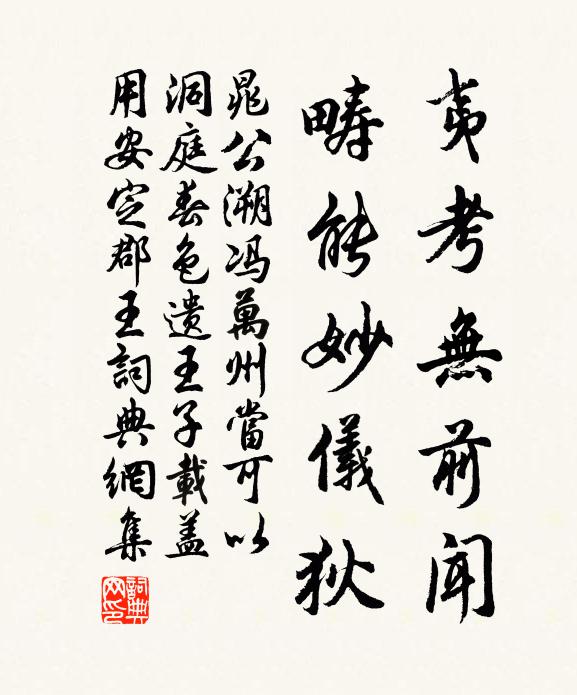 夷考無前聞
疇能妙儀狄
晁公溯馮萬州當可以
洞庭春色遺王子載盖
用安定郡王詞典網集
詞典网印